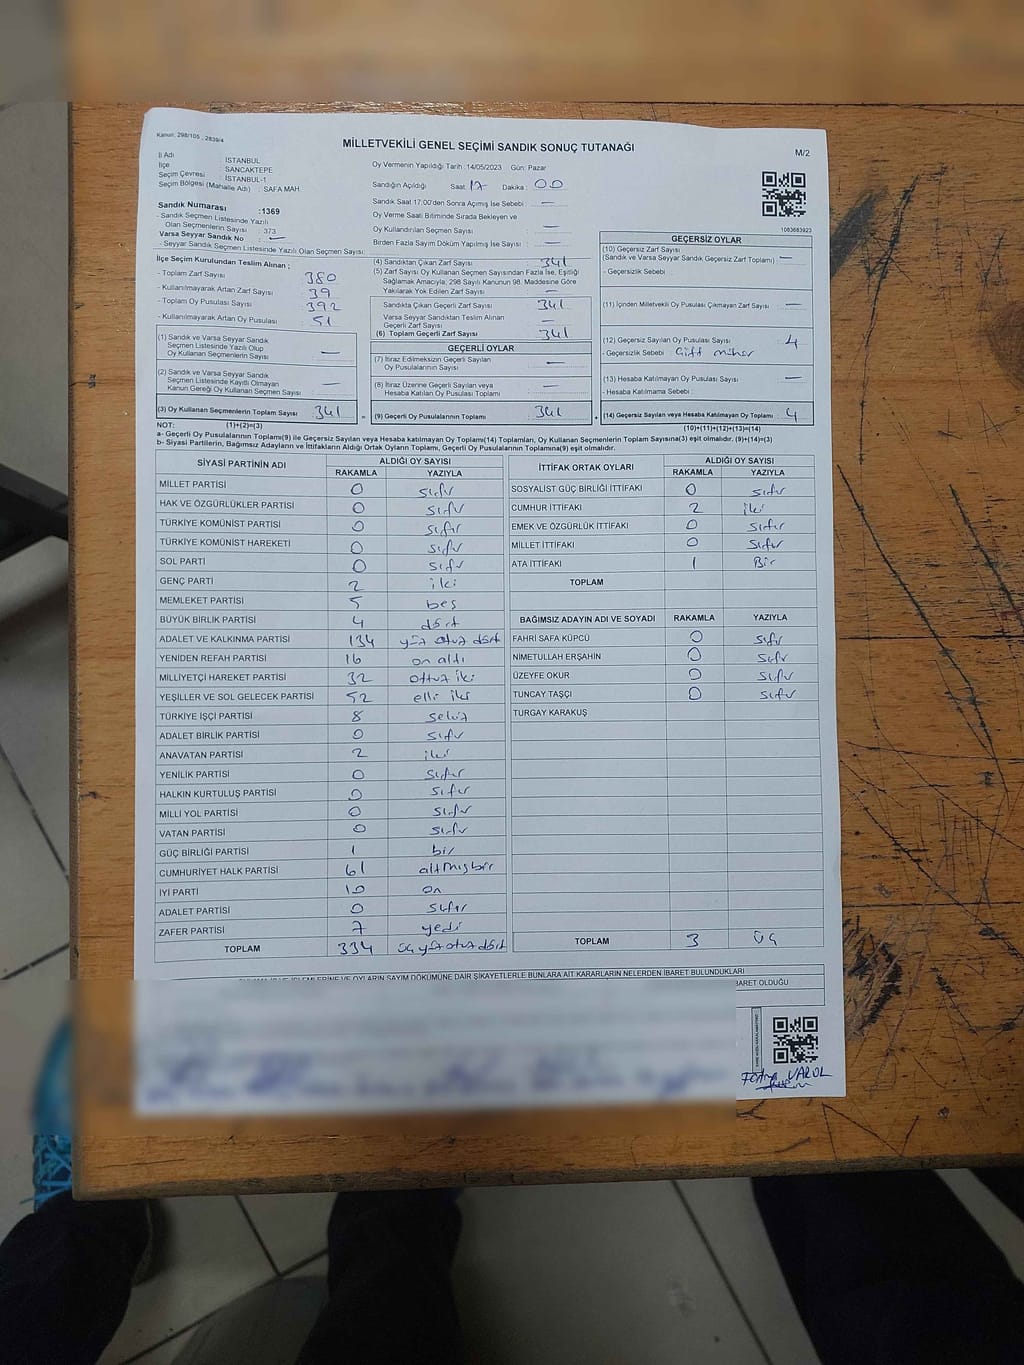 Kanun, 298/105 , 2839/4
MİLLETVEKİLİ GENEL SEÇİMİ SANDIK SONUÇ TUTANAĞI
M/2
İl Adı : İSTANBUL
İlçe : SANCAKTEPE
Seçim Çevresi : İSTANBUL-1
Seçim Bölgesi (Mahalle Adı) : SAFA MAH.
Sandık Numarası :1369
- Sandık Seçmen Listesinde Yazılı
Olan Seçmenlerin Sayısı : 373
Varsa Seyyar Sandık No : —
- Seyyar Sandık Seçmen Listesinde Yazılı Olan Seçmen Sayısı:
İlçe Seçim Kurulundan Teslim Alınan ;
- Toplam Zarf Sayısı : 380
- Kullanılmayarak Artan Zarf Sayısı : 39
- Toplam Oy Pusulası Sayısı : 392
- Kullanılmayarak Artan Oy Pusulası : 51
(1) Sandık ve Varsa Seyyar Sandık
Seçmen Listesinde Yazılı Olup
Oy Kullanan Seçmenlerin Sayısı : —
(2) Sandık ve Varsa Seyyar Sandık
Seçmen Listesinde Kayıtlı Olmayan
Kanun Gereği Oy Kullanan Seçmen Sayısı : —
(3) Oy Kullanan Seçmenlerin Toplam Sayısı : 341
(1)+(2)=(3)
Oy Vermenin Yapıldığı Tarih : 14/05/2023 Gün: Pazar
Sandığın Açıldığı Saat : 17 Dakika : 00
Sandık Saat 17.00'den Sonra Açılmış İse Sebebi : —
Oy Verme Saati Bitiminde Sırada Bekleyen ve
Oy Kullandırılan Seçmen Sayısı : —
Birden Fazla Sayım Döküm Yapılmış İse Sayısı : —
(4) Sandıktan Çıkan Zarf Sayısı : 341
(5) Zarf Sayısı Oy Kullanan Seçmen Sayısından Fazla İse, Eşitliği
Sağlamak Amacıyla, 298 Sayılı Kanunun 98. Maddesine Göre
Yakılarak Yok Edilen Zarf Sayısı : —
Sandıkta Çıkan Geçerli Zarf Sayısı : 341
Varsa Seyyar Sandıktan Teslim Alınan
Geçerli Zarf Sayısı : —
(6) Toplam Geçerli Zarf Sayısı : 341
GEÇERLİ OYLAR
(7) İtiraz Edilmeksizin Geçerli Sayılan
Oy Pusulasının Sayısı : —
(8) İtiraz Üzerine Geçerli Sayılan veya
Hesaba Katılan Oy Pusulası Toplamı : —
= (9) Geçerli Oy Pusulalarının Toplamı : 341
1083683923
GEÇERSİZ OYLAR
(10) Geçersiz Zarf Sayısı
(Sandık ve Varsa Seyyar Sandık Geçersiz Zarf Toplamı) : —
- Geçersizlik Sebebi :
(11) İçinden Milletvekili Oy Pusulası Çıkmayan Zarf Sayısı : —
(12) Geçersiz Sayılan Oy Pusulası Sayısı : 4
- Geçersizlik Sebebi : Çift mühür
(13) Hesaba Katılmayan Oy Pusulası Sayısı : —
- Hesaba Katılmama Sebebi :
+ (14) Geçersiz Sayılan veya Hesaba Katılmayan Oy Toplamı : 4
(10)+(11)+(12)+(13)=(14)
NOT:
a- Geçerli Oy Pusulalarının Toplamı(9) ile Geçersiz Sayılan veya Hesaba katılmayan Oy Toplamı(14) Toplamları, Oy Kullanan Seçmenlerin Toplam Sayısına(3) eşit olmalıdır. (9)+(14)=(3)
b- Siyasi Partilerin, Bağımsız Adayların ve İttifakların Aldığı Ortak Oyların Toplamı, Geçerli Oy Pusulalarının Toplamına(9) eşit olmalıdır.
SİYASİ PARTİNİN ADI ALDIĞI OY SAYISI
RAKAMLA YAZIYLA
MİLLET PARTİSİ 0 sıfır
HAK VE ÖZGÜRLÜKLER PARTİSİ 0 sıfır
TÜRKİYE KOMÜNİST PARTİSİ 0 sıfır
TÜRKİYE KOMÜNİST HAREKETİ 0 sıfır
SOL PARTİ 0 sıfır
GENÇ PARTİ 2 iki
MEMLEKET PARTİSİ 5 beş
BÜYÜK BİRLİK PARTİSİ 4 dört
ADALET VE KALKINMA PARTİSİ 134 yüz otuz dört
YENİDEN REFAH PARTİSİ 16 on altı
MİLLİYETÇİ HAREKET PARTİSİ 32 otuz iki
YEŞİLLER VE SOL GELECEK PARTİSİ 52 elli iki
TÜRKİYE İŞÇİ PARTİSİ 8 sekiz
ADALET BİRLİK PARTİSİ 0 sıfır
ANAVATAN PARTİSİ 2 iki
YENİLİK PARTİSİ 0 sıfır
HALKIN KURTULUŞ PARTİSİ 0 sıfır
MİLLİ YOL PARTİSİ 0 sıfır
VATAN PARTİSİ 0 sıfır
GÜÇ BİRLİĞİ PARTİSİ 1 bir
CUMHURİYET HALK PARTİSİ 61 altmışbir
İYİ PARTİ 10 on
ADALET PARTİSİ 0 sıfır
ZAFER PARTİSİ 7 yedi
TOPLAM 334 üç yüz otuz dört
İTTİFAK ORTAK OYLARI ALDIĞI OY SAYISI
RAKAMLA YAZIYLA
SOSYALİST GÜÇ BİRLİĞİ İTTİFAKI 0 sıfır
CUMHUR İTTİFAKI 2 iki
EMEK VE ÖZGÜRLÜK İTTİFAKI 0 sıfır
MİLLET İTTİFAKI 0 sıfır
ATA İTTİFAKI 1 Bir
TOPLAM
BAĞIMSIZ ADAYIN ADI VE SOYADI RAKAMLA YAZIYLA
FAHRİ SAFA KÜPCÜ 0 sıfır
NİMETULLAH ERŞAHİN 0 sıfır
ÜZEYFE OKUR 0 sıfır
TUNCAY TAŞÇI 0 sıfır
TURGAY KARAKUŞ
TOPLAM 3 üç
OYLARIN SAYIM DÖKÜMÜNE DAİR ŞİKAYETLERLE BUNLARA AİT KARARLARIN NELERDEN İBARET BULUNDUKLARI
BARET OLDUĞU
VAROL